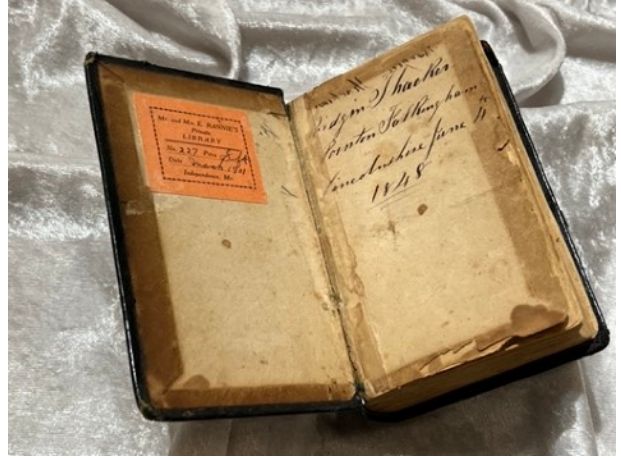 Mr. and Mrs. E. RANNIE'S
Private
LIBRARY
No. 227 Price
Date 1921
Independence, Mo.
Thacker
Pointon Falkingham
Lincolnshire June 4
1848